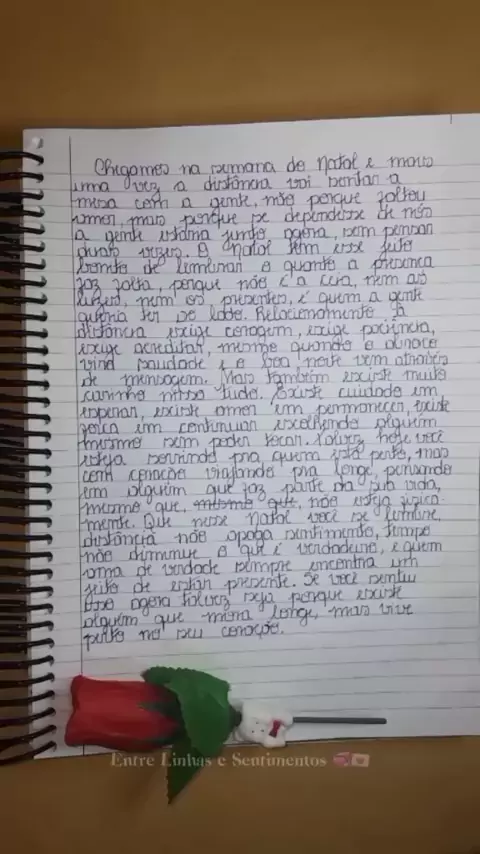 Chegamos na semana do Natal e mais
uma vez a distância vai sentar a
mesa com a gente, não porque faltou
amor, mas porque se dependesse de nós
a gente estaria junto agora, sem pensar
duas vezes. O Natal tem esse jeito
bonito de lembrar o quanto a presença
faz falta, porque não é a ceia, nem as
luzes, nem os presentes, é quem a gente
queria ter do lado. Relacionamento à
distância exige coragem, exige paciência,
exige acreditar, mesmo quando o abraço
vira saudade e o boa noite vem através
de mensagem. Mas também existe muito
carinho nisso tudo. Existe cuidado em
esperar, existe amor em permanecer, existe
força em continuar escolhendo alguém
mesmo sem poder tocar. Talvez hoje você
esteja sorrindo pra quem está perto, mas
com coração viajando pra longe, pensando
em alguém que faz parte da sua vida,
mesmo que, mesmo que, não esteja fisica-
mente. Que nesse Natal você se lembre,
distância não apaga sentimento, tempo
não diminue o que é verdadeiro, e quem
ama de verdade sempre encontra um
jeito de estar presente. Se você sentiu
isso agora talvez seja porque existe
alguém que mora longe, mais vive
perto no seu coração.
Entre Linhas e Sentimentos